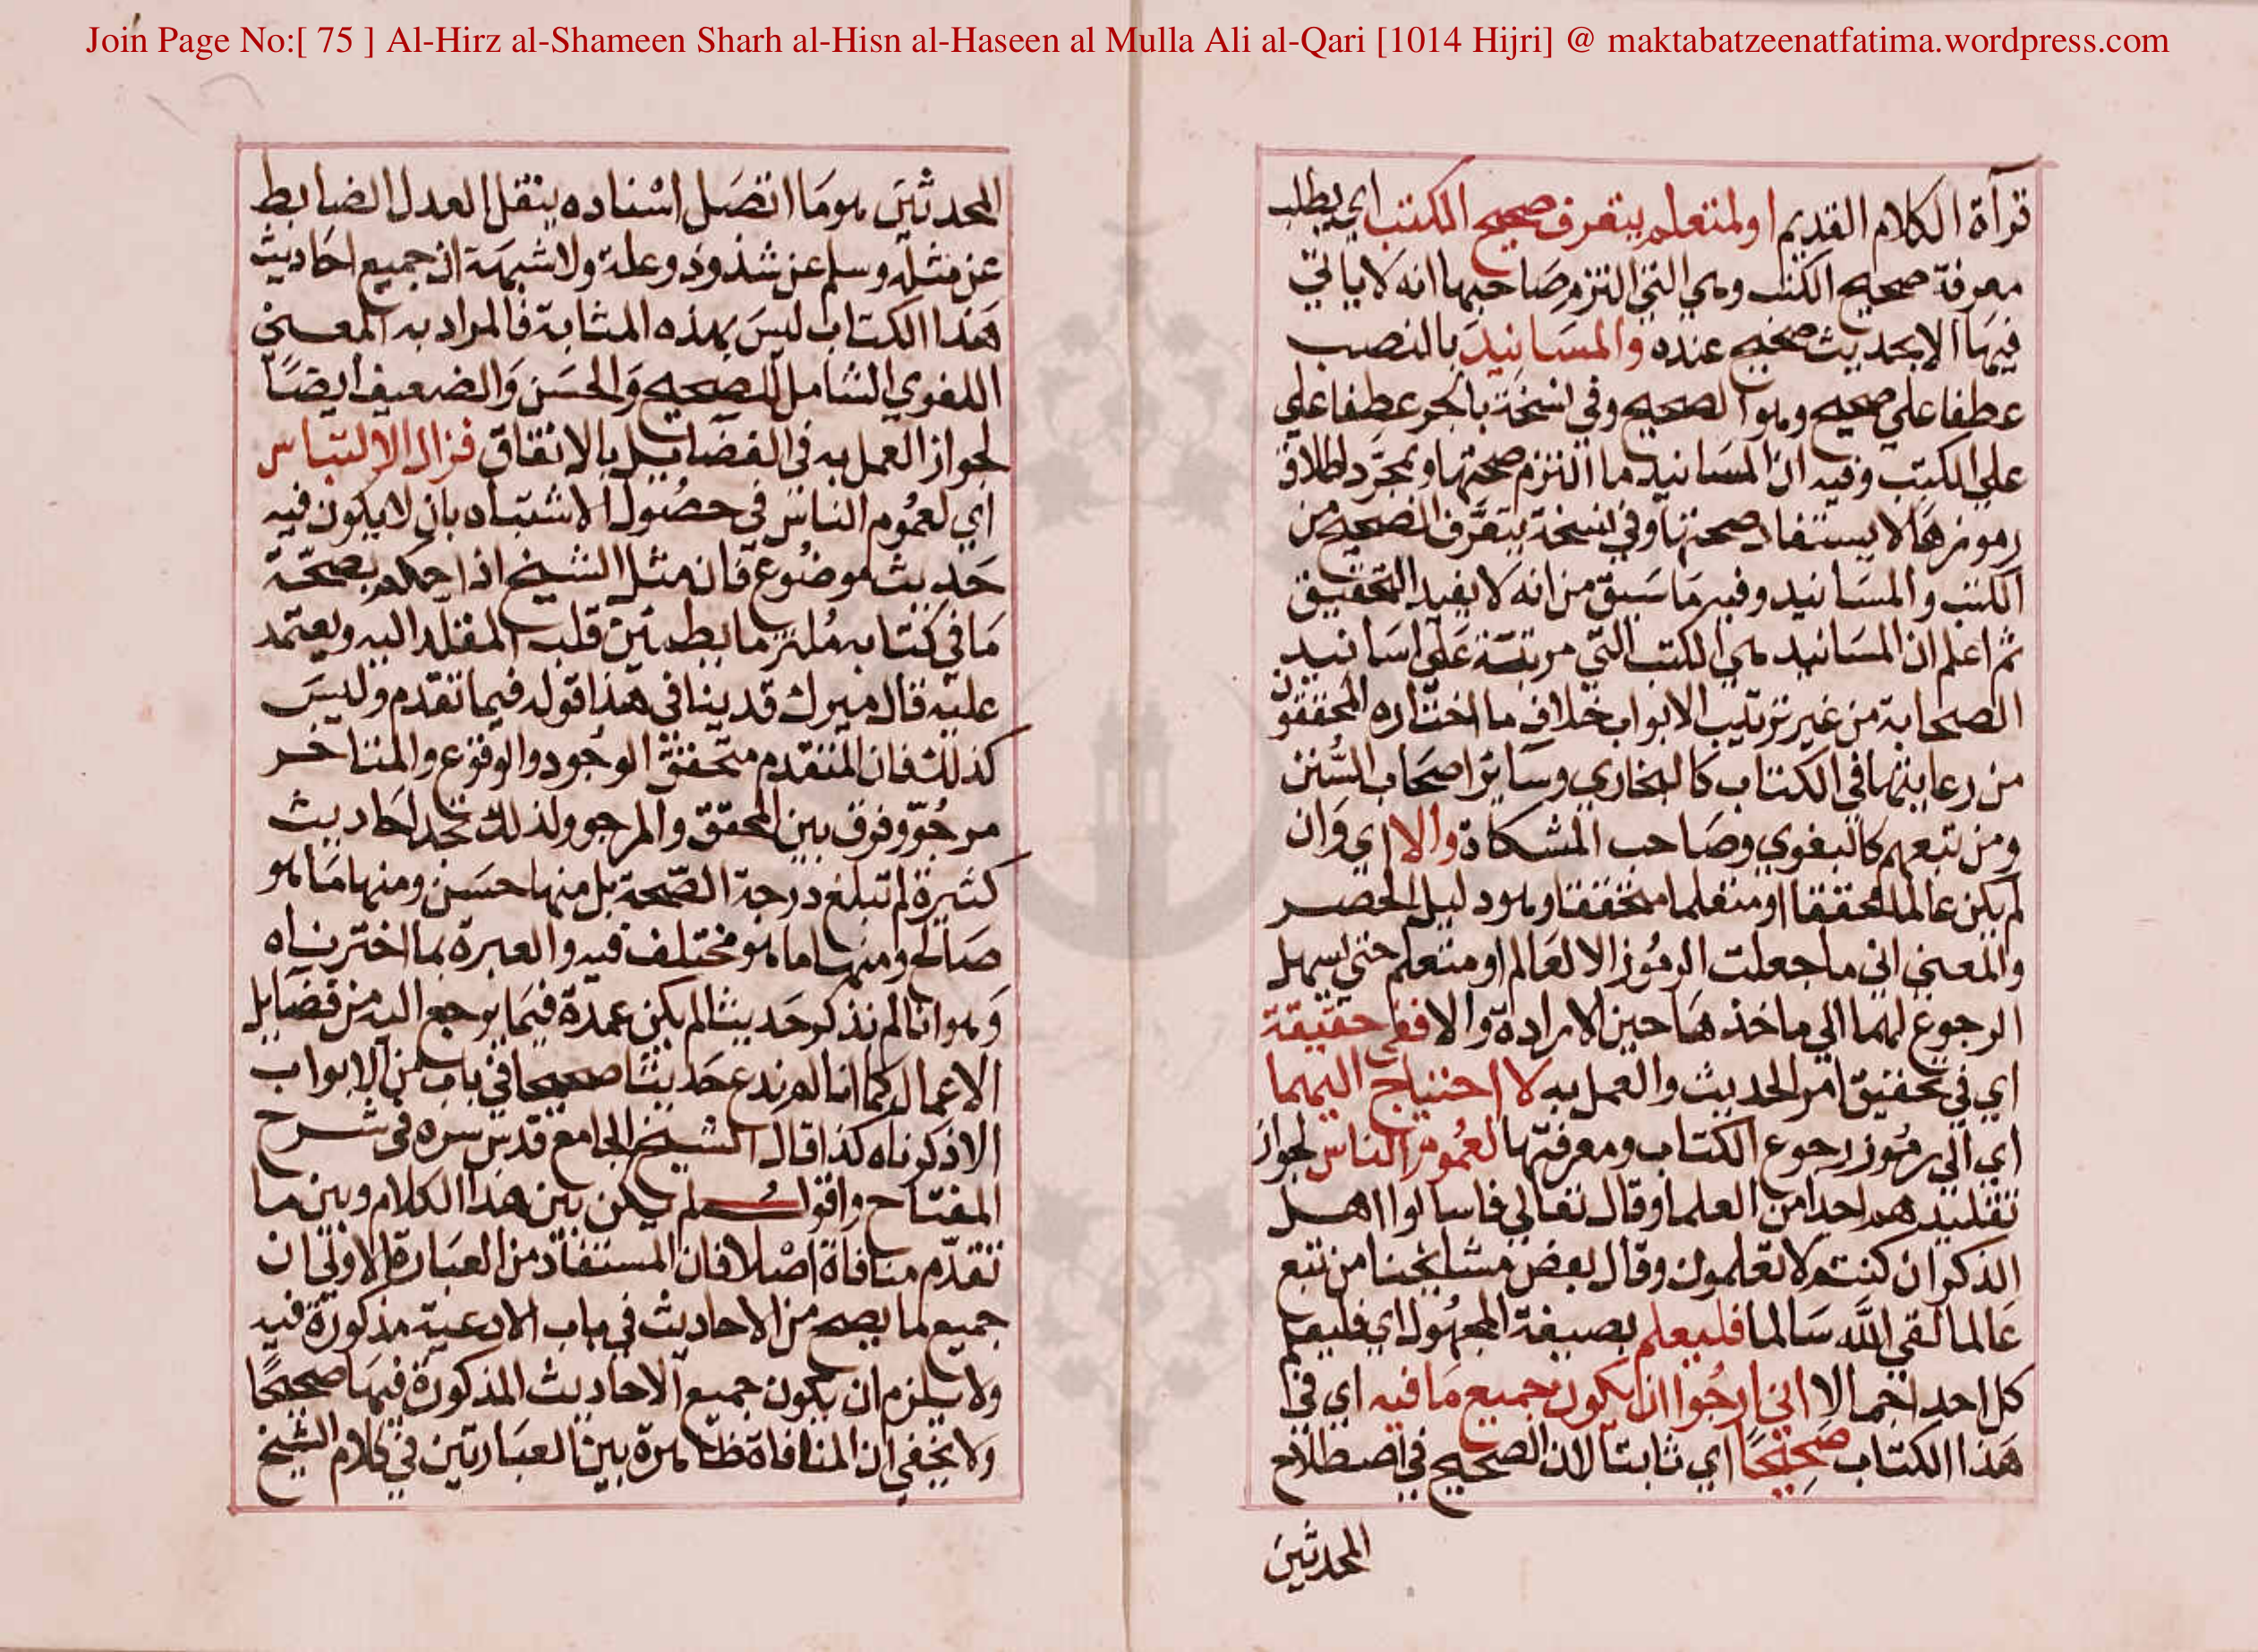 Join Page No:[ 75 ] Al-Hirz al-Shameen Sharh al-Hisn al-Haseen al Mulla Ali al-Qari [1014 Hijri] @ maktabatzeenatfatima.wordpress.com
قرآة الكلام القديم اولمتعلم يتعرف صحيح الكتب اي يطلب
معرفة صحيح الكتب وهي التي التزم صاحبها انه لا ياتي
فيها الا بحديث صحيح عنده والمسانيد بالنصب
عطفا علي صحيح وهو الصحيح وفي نسخة بالجر عطفا علي
علي الكتب وفيه ان المسانيد ما التزم صحتها وبمجرد اطلاق
رموزها لا يستفاد صحتها وفي نسخة يتعرف الصحيح من
الكتب والمسانيد وفيه ما سبق من انه لا يفيد التحقيق
ثم اعلم ان المسانيد هي الكتب التي مرتبة على اسانيد
الصحابة من غير ترتيب الابواب خلاف ما اختاره المحققون
من رعايتها في الكتاب كالبخاري وسائر اصحاب السنن
ومن تبعهم كالبغوي وصاحب المشكاة والا اي وان
لم يكن عالما محققا او متعلما محققا وهو دليل الحصر
والمعني اني ما جعلت الرموز الا لعالم او متعلم حتي اسهل
الرجوع لهما الي ماخذها حين الارادة والا ففي حقيقة
اي في تحقيق امر الحديث والعمل به لا احتياج اليهما
اي الي رموز رجوع الكتاب ومعرفتها لعموم الناس لجواز
تقليدهم احدا من العلما وقال تعالي فاسالوا اهل
الذكر ان كنتم لا تعلمون وقال بعض مشايخنا من تبع
عالما لقي الله سالما فليعلم بصيغة المجهول اي فليعلم
كل احد اجمالا اني ارجوا ان يكون جميع ما فيه اي في
هذا الكتاب صحيحا اي ثابتا لان الصحيح في اصطلاح
المحدثين
المحدثين هو ما اتصل اسناده بنقل العدل الضابط
عن مثله وسلم عن شذوذ وعلة ولا شبهة ان جميع احاديث
هذا الكتاب ليس بهذه المثابة فالمراد به المعني
اللغوي الشامل للصحيح والحسن والضعيف ايضا
لجواز العمل به في الفضايل بالاتفاق فزال الالتباس
اي لعموم الناس في حصول الاشتباه بان لا يكون فيه
حديث موضوع فان مثل الشيخ اذا حكم بصحة
ما في كتابه ملتزما يطمئن قلب المقلد اليه ويعتمد
عليه قال ميرك قد ينافي هذا قوله فيما تقدم وليس
كذلك فان المتقدم متحقق الوجود والوقوع والمتاخر
مرجو وفرق بين المحقق والمرجو ولذلك تجد احاديث
كثيرة لم تبلغ درجة الصحة بل منها حسن ومنها ما هو
صالح ومنها ما هو مختلف فيه والعبرة بما اخترناه
وهو انا لم نذكر حديثا لم يكن عمدة فيما يرجع اليه من فضايل
الاعمال كما انا لم ندع حديثا صحيحا في باب من الابواب
الا ذكرناه كذا قال الشيخ الجامع قدس سره في شرح
المفتاح واقول لم يكن بين هذا الكلام وبين ما
تقدم منافاة اصلا فان المستفاد من العبارة الاولي ان
جميع ما يصح من الاحاديث في باب الادعية مذكورة فيه
ولا يلزم ان يكون جميع الاحاديث المذكورة فيها صحيحا
ولا يخفي ان المنافاة ظاهرة بين العبارتين في كلام الشيخ